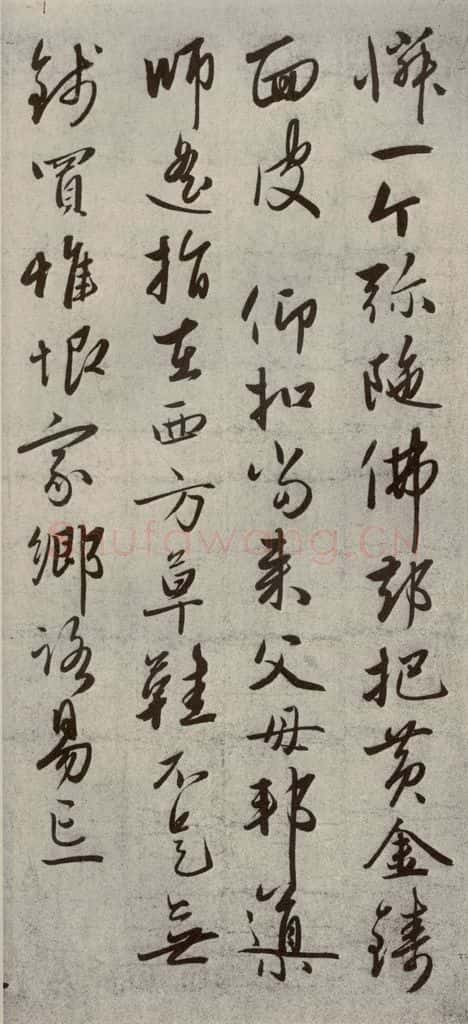 憐一个弥陁佛却把黄金鑄
面皮 仰扣当来父母邦導
師遥指在西方草鞋不是無
錢買惟恨家鄉路易忘
Shufawang.CN